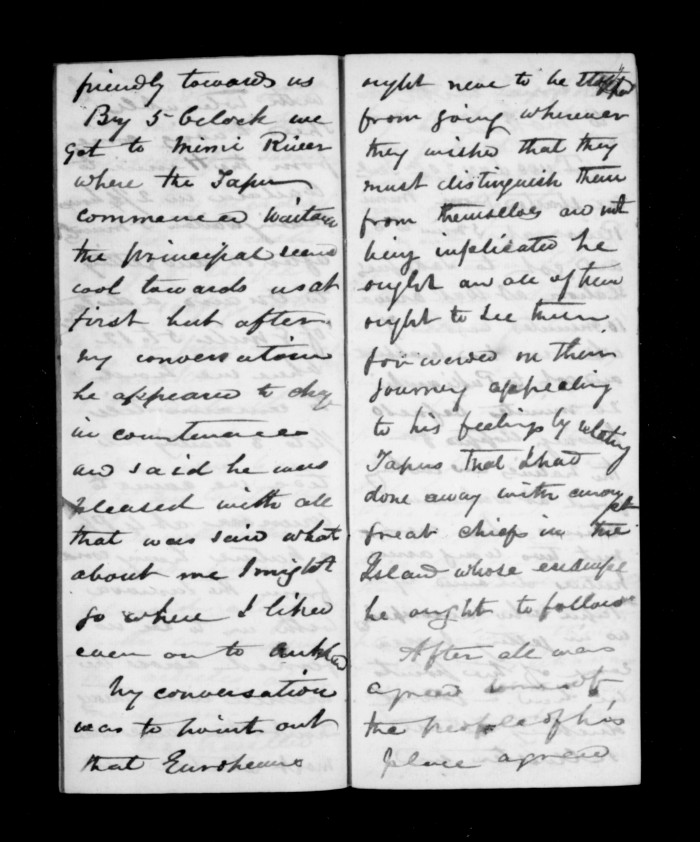 friendly towards us
By 5 Oclock we
Got to Mimi River
where the Tapu
commences Waitara
the principal seemed
cool towards us at
first but after
my conversation
he appeared to chg
in countenance
and said he was
pleased with all
that was said what
about me I might
go where I liked
even on to
My conversation
was to point out
that Europeans
ought never to be stopped
from going wherever
they wished that they
must distinguish them
from themselves and not
being implicated he
ought and all of them
ought to see them
forwarded on their
Journey appealing
to his feelings by relating
Tapus that I had
done away with among
great chiefs in the
Island whose example
he ought to follow
After all was
agreed
the people of his
place agreed